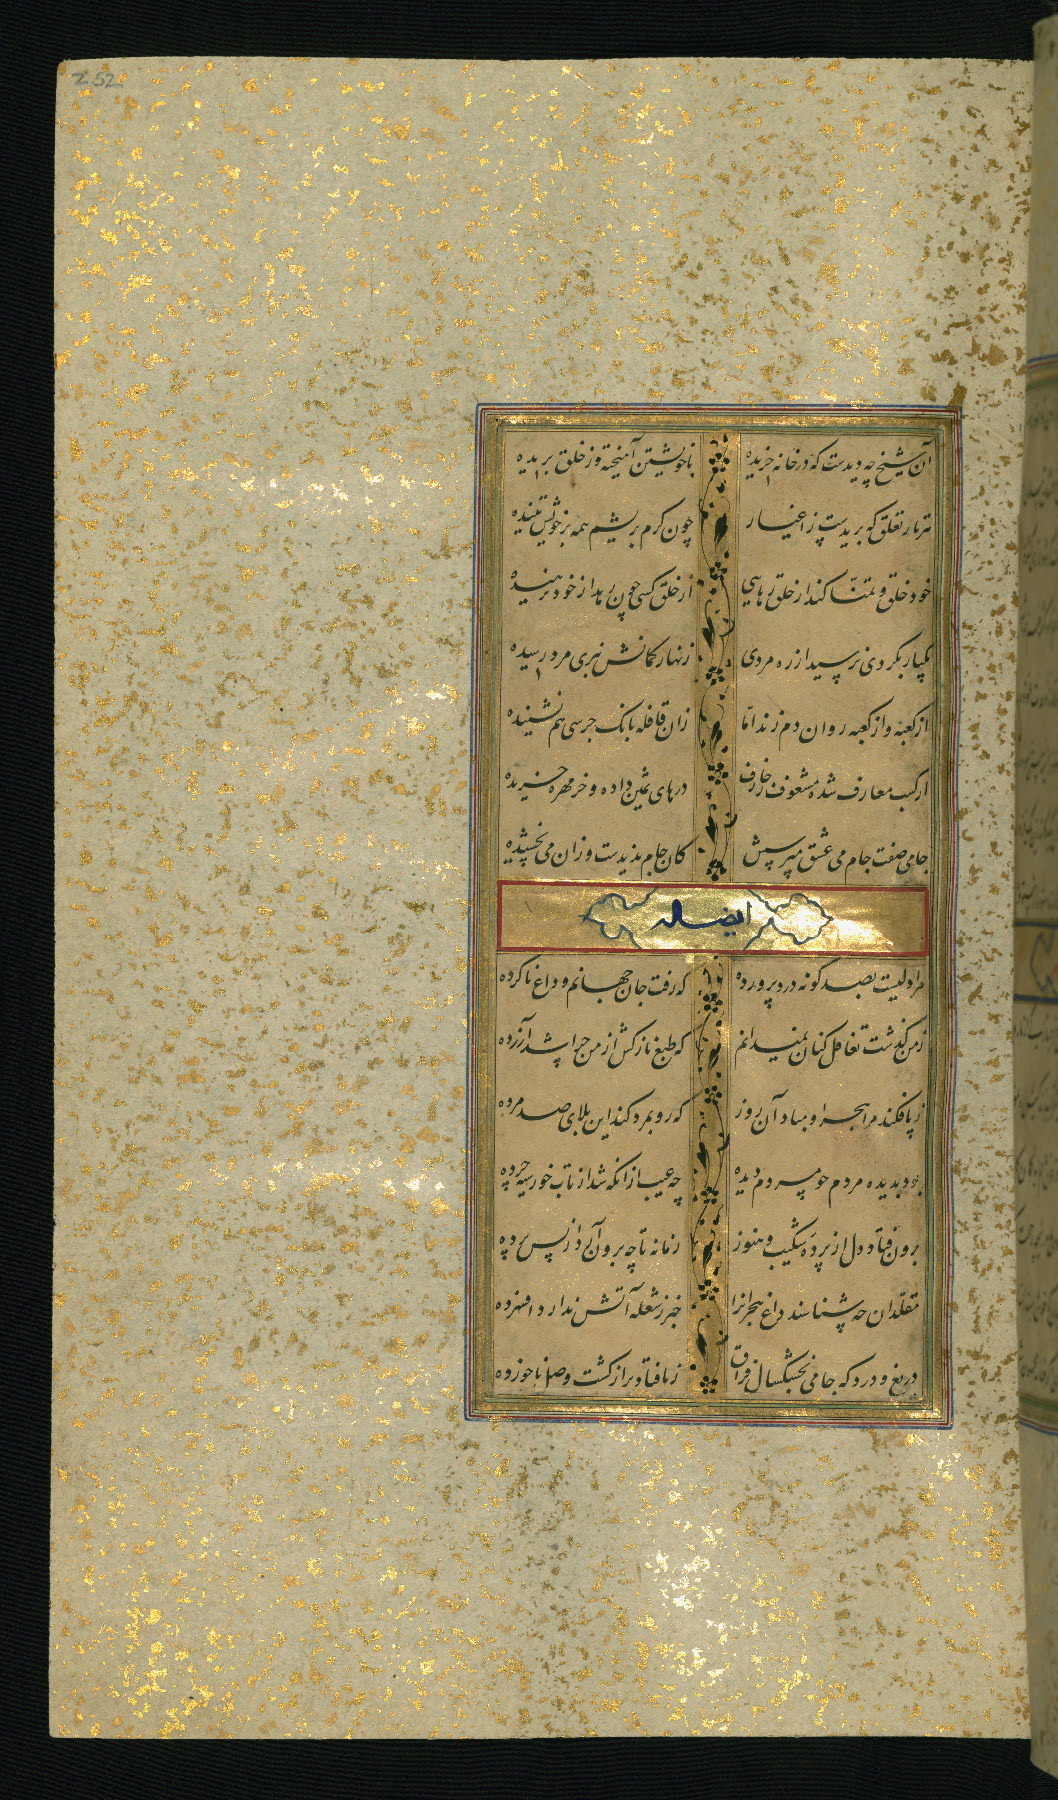 252
آن شیخ چه دیدست که در خانه خزیده با خویشتن آمیخته وز خلق بریده
هر تار تعلق که بریدست ز اغیار چون کرم بریشم همه بر خویش تنیده
خود خلق و تمنا کند از خلق رهایی از خلق کسی چون برهد از خود نرهیده
یکبار بگردی نرسید از ره مردی زنهار گمانش نبری مرد رسیده
از کعبه و از کعبه روان دم زند اما زان قافله بانگ جرسی هم نشنیده
از کسب معارف شده مشعوف زخارف درهای ثمین داده و خرمهره خریده
جامی صفت جام می عشق مپرسش کان جام ندیدست وزان می نچشیده
ایضا له
مرا دلیست بصد گونه درد پرورده که رفت جان جهانم وداع ناکرده
ز من گذشت تغافل کنان نمیدانم که طبع نازکش از من چرا شد آزرده
ز پا فکند مرا هجر او مباد آن روز که رو بمرد کند این بلای صد مرده
بود بدیده مردم چو مردم دیده چه عیب از انکه شد از تاب خور سیه چرده
برون فتاد دل از پرده شکیب و هنوز زمانه تا چه برون آرد از پس پرده
مقلدان چه شناسند داغ هجرانرا خبر ز شعله آتش ندارد افسرده
دریغ و درد که جامی بخشکسال فراق ز پا فتاد بر از کشت وصل ناخورده